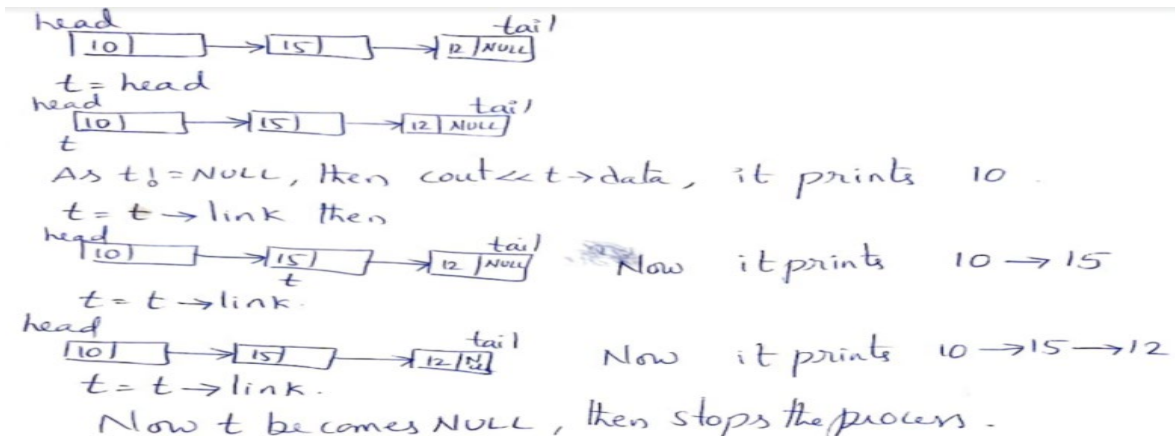 head tail
10 → 15 → 12 NULL
t = head
head tail
10 → 15 → 12 NULL
t
As t != NULL, then cout<< t→data, it prints 10.
t = t → link then
head tail
10 → 15 → 12 NULL Now it prints 10 → 15
t
t = t → link.
head tail
10 → 15 → 12 Now it prints 10 → 15 → 12
t = t → link.
Now t becomes NULL, then stops the process.